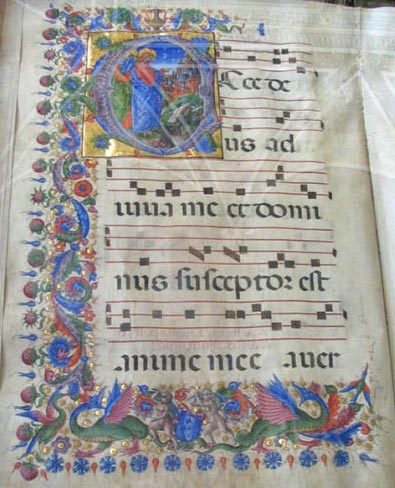 Ecce de
us ad
iuua me et domi
nus susceptor est
anime mee auer